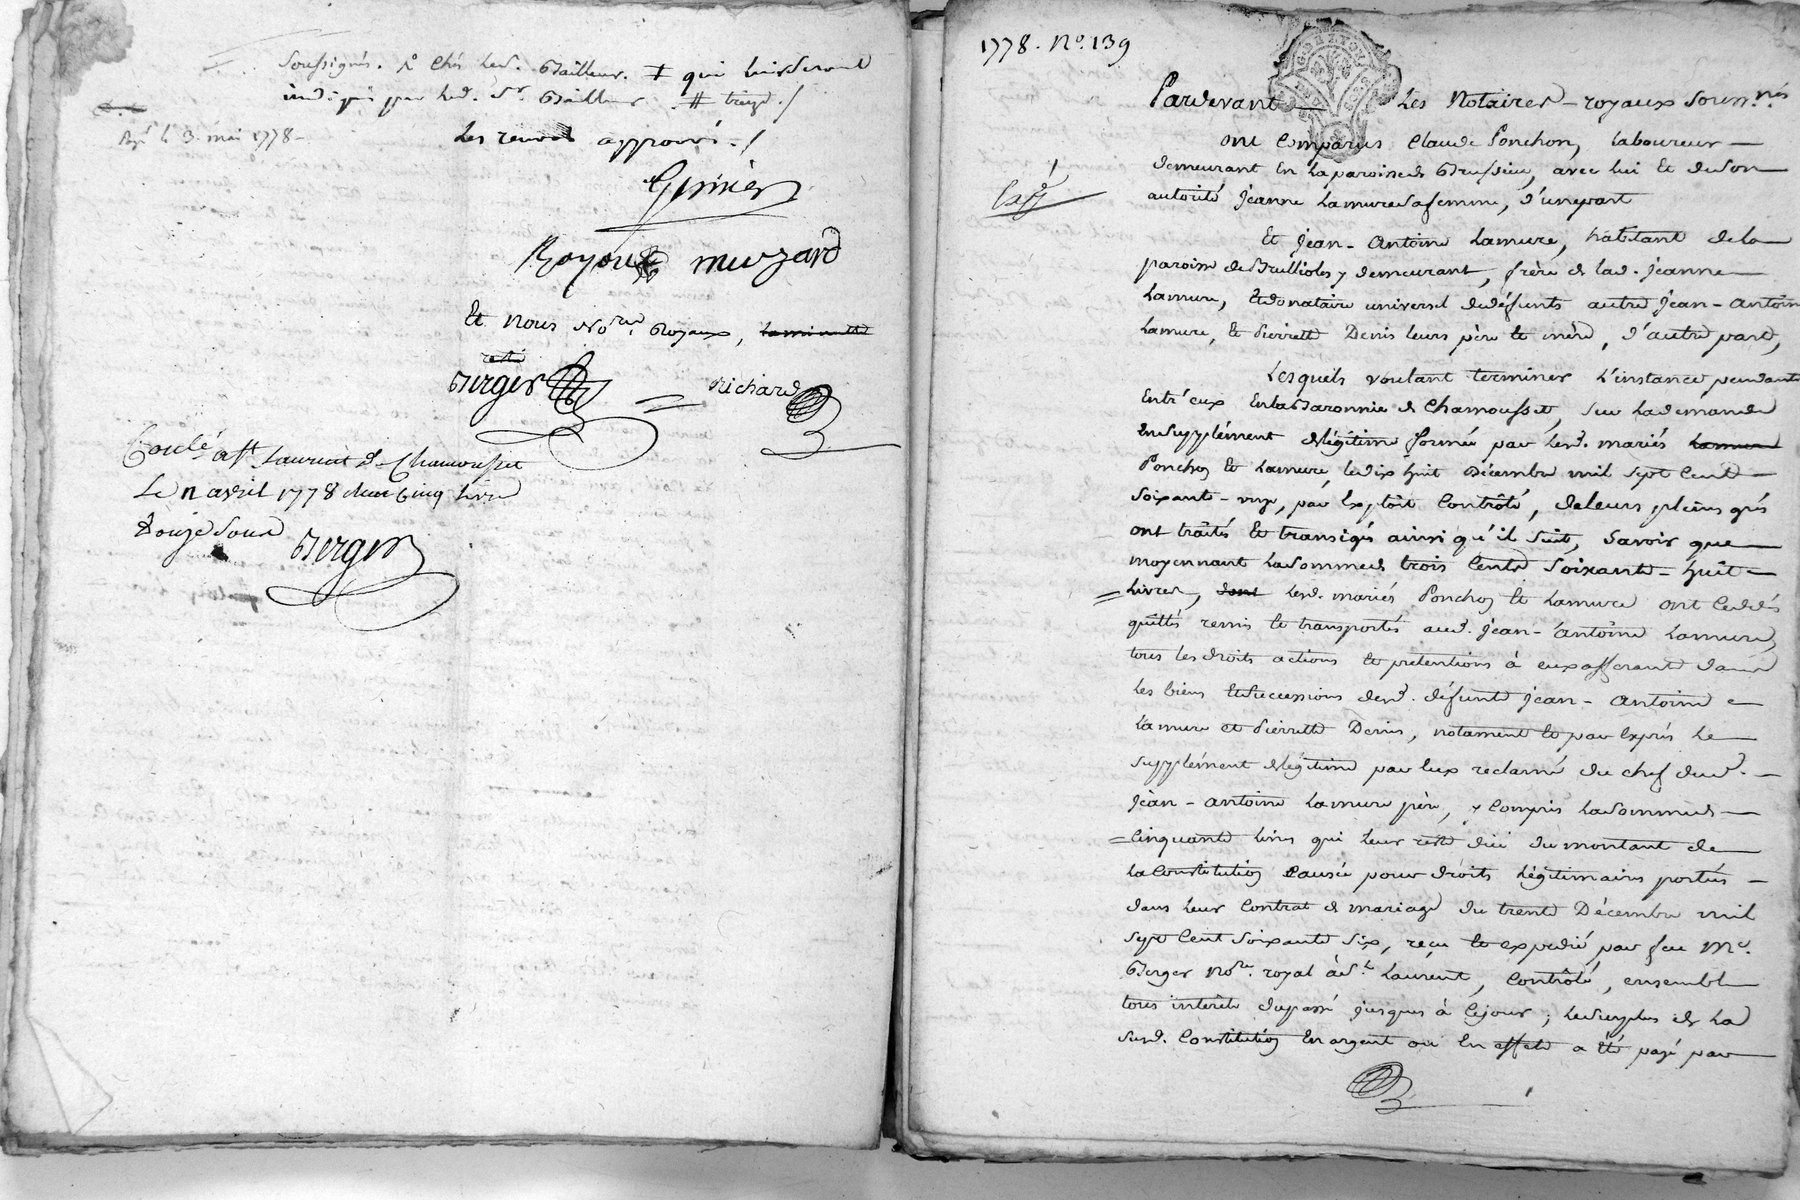 soussignés. & chés led. Bailleur. ‡ qui luis seront
indiqués par led. Sr. Bailleur # treize ./
Les renvois approuvés ./
le 3. mai 1778
Royoux muzard
Et nous No.res Royaux, la minutte
resté
Berger = Richard
Conlé. a St. Laurent d. Chamousset
Le avril 1778 cinq livres
Douze sous Berger
1778. No. 139
Pardevant Les Notaires royaux soussnés
ont Comparus Claude Ponchon, laboureur
demeurant En la paroisse de Brussieu, avec lui Et de son
autorité Jeanne Lamure sa femme, d'une part
Et Jean-Antoine Lamure, habitant de la
paroisse de Brullioles y demeurant, frère de lad. Jeanne
Lamure, Et donataire universel de défunts autre Jean-Antoine
Lamure, Et Pierrette Denis leurs père Et mère, d'autre part,
Lesquels voulant terminer L'instance pendante
Entr'eux En la Baronnie de Chamousset, sur la demande
En supplément de légitime formée par lesd. mariés Lamure
Ponchon Et Lamure, le dix huit Décembre mil sept Cent
Soixante-onze, par Exploit Contrôlé, de leurs pleins grés
ont traités Et transigés ainsi qu'il suit, Savoir que
moyennant la somme de trois Cents Soixante-huit
= Livres, dont lesd. mariés Ponchon Et Lamure ont Ceddés
quittés remis Et transportés aud. Jean-Antoine Lamure,
tous les droits actions Et prétentions à eux afférants dans
les biens Et Successions desd. défunts Jean-Antoine
Lamure et Pierrette Denis, notament Et par Exprés Le
supplément de légitime par Eux reclamé du chef dud.
Jean-Antoine Lamure père, y Compris la somme de
= Cinquante livres qui leur reste düe du montant de
la Constitution Causée pour droits légitimaires portés
dans leur Contrat de mariage du trente Décembre mil
sept Cent Soixante six, reçu Et expédié par feu Me.
Berger Nore. royal à St. Laurent, Contrôlé, ensemble
tous intérêts du passé jusques à Ce jour; le surplus de La
susd. Constitution En argent ou En effets a Eté payé par